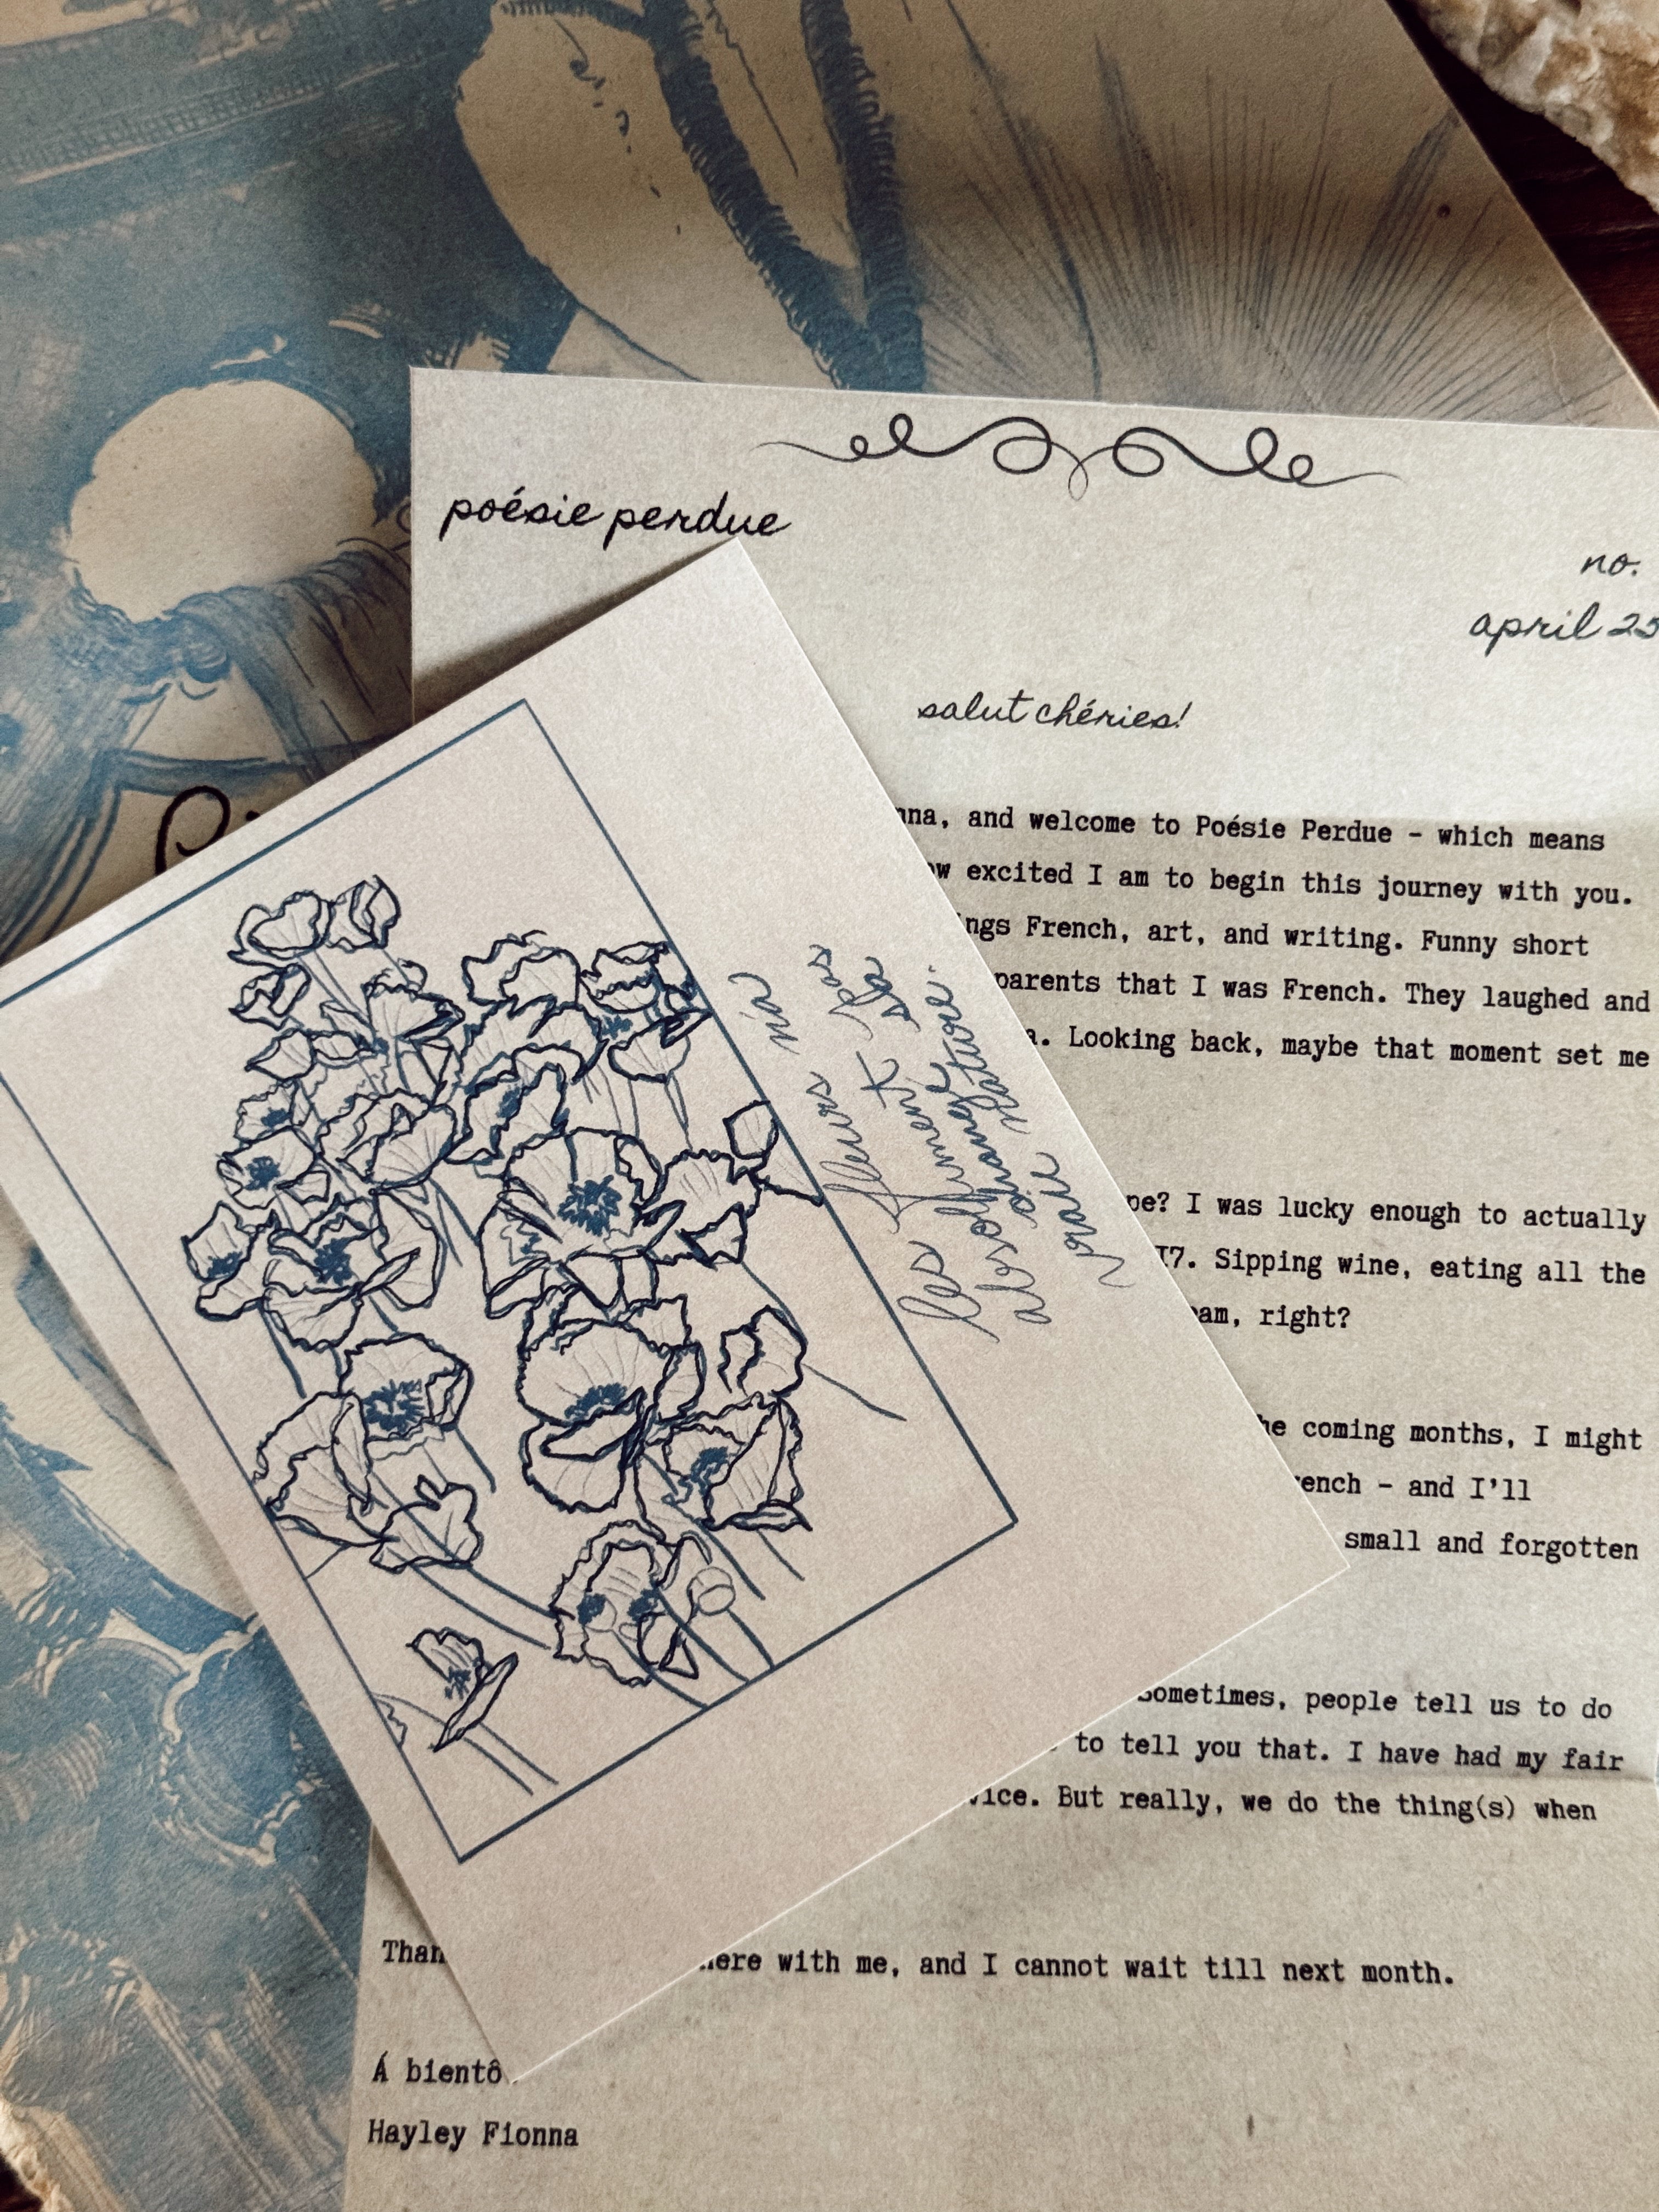 poésie perdue
no.
april 25
salut chéries!
nna, and welcome to Poésie Perdue – which means
ow excited I am to begin this journey with you.
ings French, art, and writing. Funny short
parents that I was French. They laughed and
a. Looking back, maybe that moment set me
pe? I was lucky enough to actually
17. Sipping wine, eating all the
eam, right?
he coming months, I might
rench – and I'll
small and forgotten
Sometimes, people tell us to do
to tell you that. I have had my fair
vice. But really, we do the thing(s) when
Than
here with me, and I cannot wait till next month.
Á bientô
Hayley Fionna
les fleurs
absolument pas
changé sa
vraie nature.